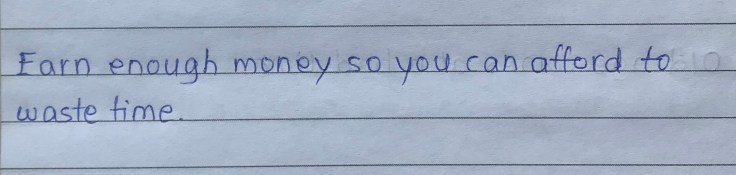 Earn enough money so you can afford to
waste time.